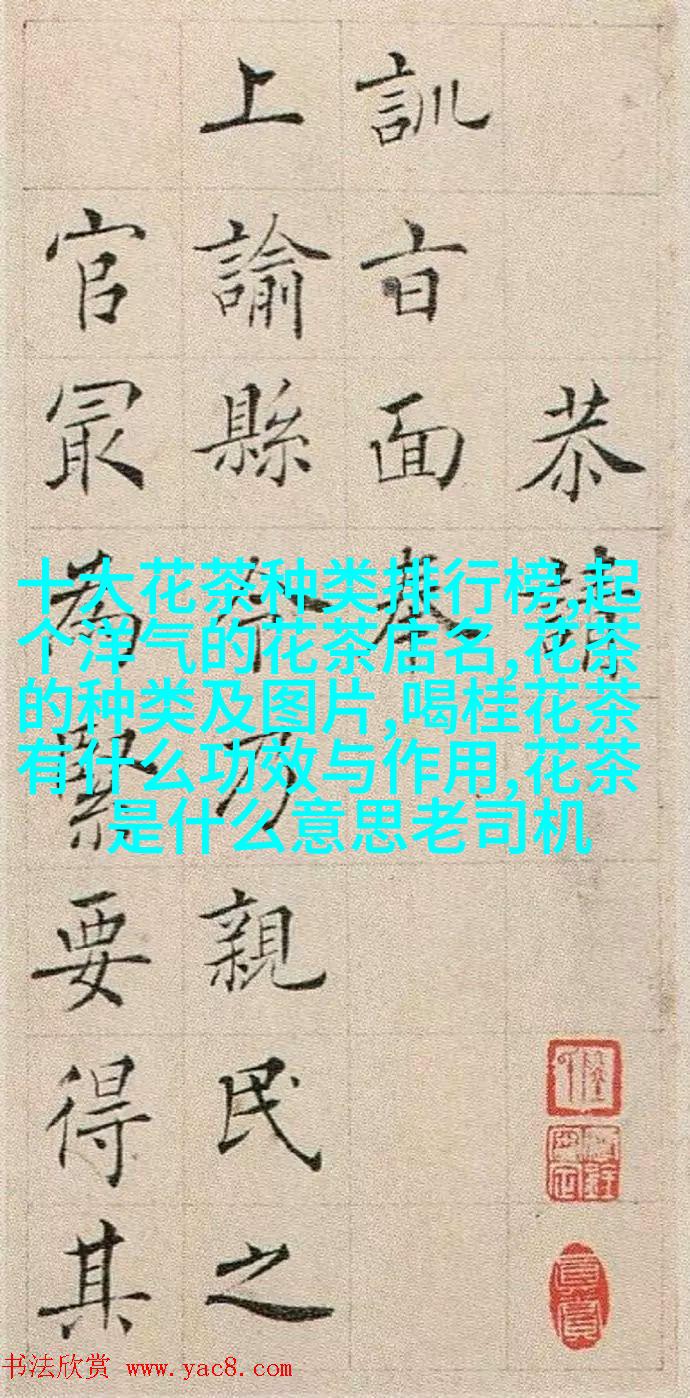 恭請
訓旨面奉
上諭縣令乃親民之
官冣為緊要得其
十大花茶种类排行榜,起
个洋气的花茶店名,花茶
的种类及图片,喝桂花茶
有什么功效与作用,花茶
是什么意思老司机
书法欣赏 www.yac8.com